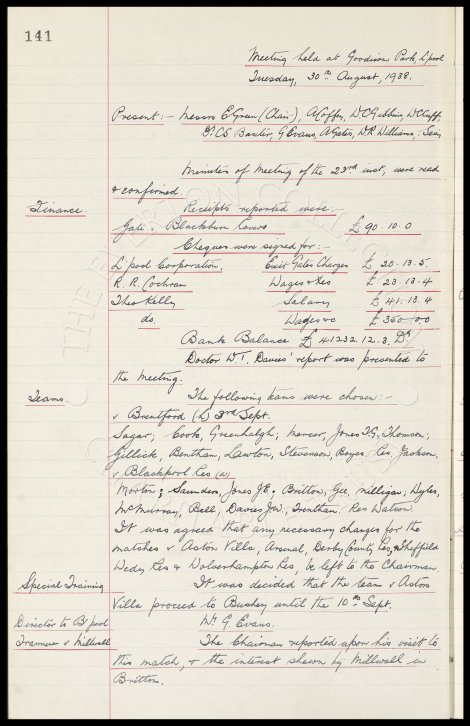 141
Meeting held at Goodison Park, L'pool
Tuesday, 30th August, 1938.
Present :- Messrs E. Green (Chair), A. Coffey, D.C. Gibbins, W.C. Cuff,
Dr C.S. Baxter, G. Evans, A. Gates, W.R. Williams, Secy.
Minutes of Meeting of the 23rd inst. were read
& confirmed.
Finance. Receipts reported were :-
Gate :- Blackburn Rovers £ 90 . 10 . 0
Cheques were signed for :-
L'pool Corporation, Exit Gates Charges £ 20 . 13 . 5.
R. R. Cochran Wages & Xes £ 23 . 13 . 4
Theo Kelly Salary £ 41 . 13 . 4
do. Wages &c £ 350 . 0 . 0
Bank Balance £ 41232 . 12 . 3. Dr
Doctor W.T. Davies' report was presented to
the Meeting.
Teams. The following teams were chosen :-
v Brentford (h) 3rd Sept.
Sagar ; Cook, Greenhalgh ; Mercer, Jones T.G, Thomson ;
Gillick, Bentham, Lawton, Stevenson, Boyes. Res Jackson.
v Blackpool Res (a)
Morton ; Saunders, Jones J.E ; Britton, Gee, Milligan ; Wyles,
McMurray, Bell, Davies J.W, Trentham. Res Watson.
It was agreed that any necessary changes for the
matches v Aston Villa, Arsenal, Derby County Res, Sheffield
Wedy Res & Wolverhampton Res, be left to the Chairman.
Special Training It was decided that the team v Aston
Villa proceed to Bushey until the 10th Sept.
Director to B'pool Mr G. Evans.
Tranmere v Millwall The Chairman reported upon his visit to
this match, & the interest shewn by Millwall in
Britton.
THE EVERTON COLLECTION